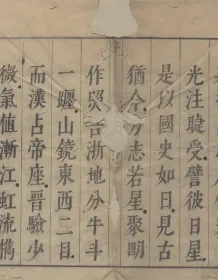 光注睫受譬彼日星
是以國史如日見古
猶今方志若星聚明
作照吾浙地分牛斗
一躔山鏡東西二目
而漢占帝座晉驗少
微氣值漸江虹流檇